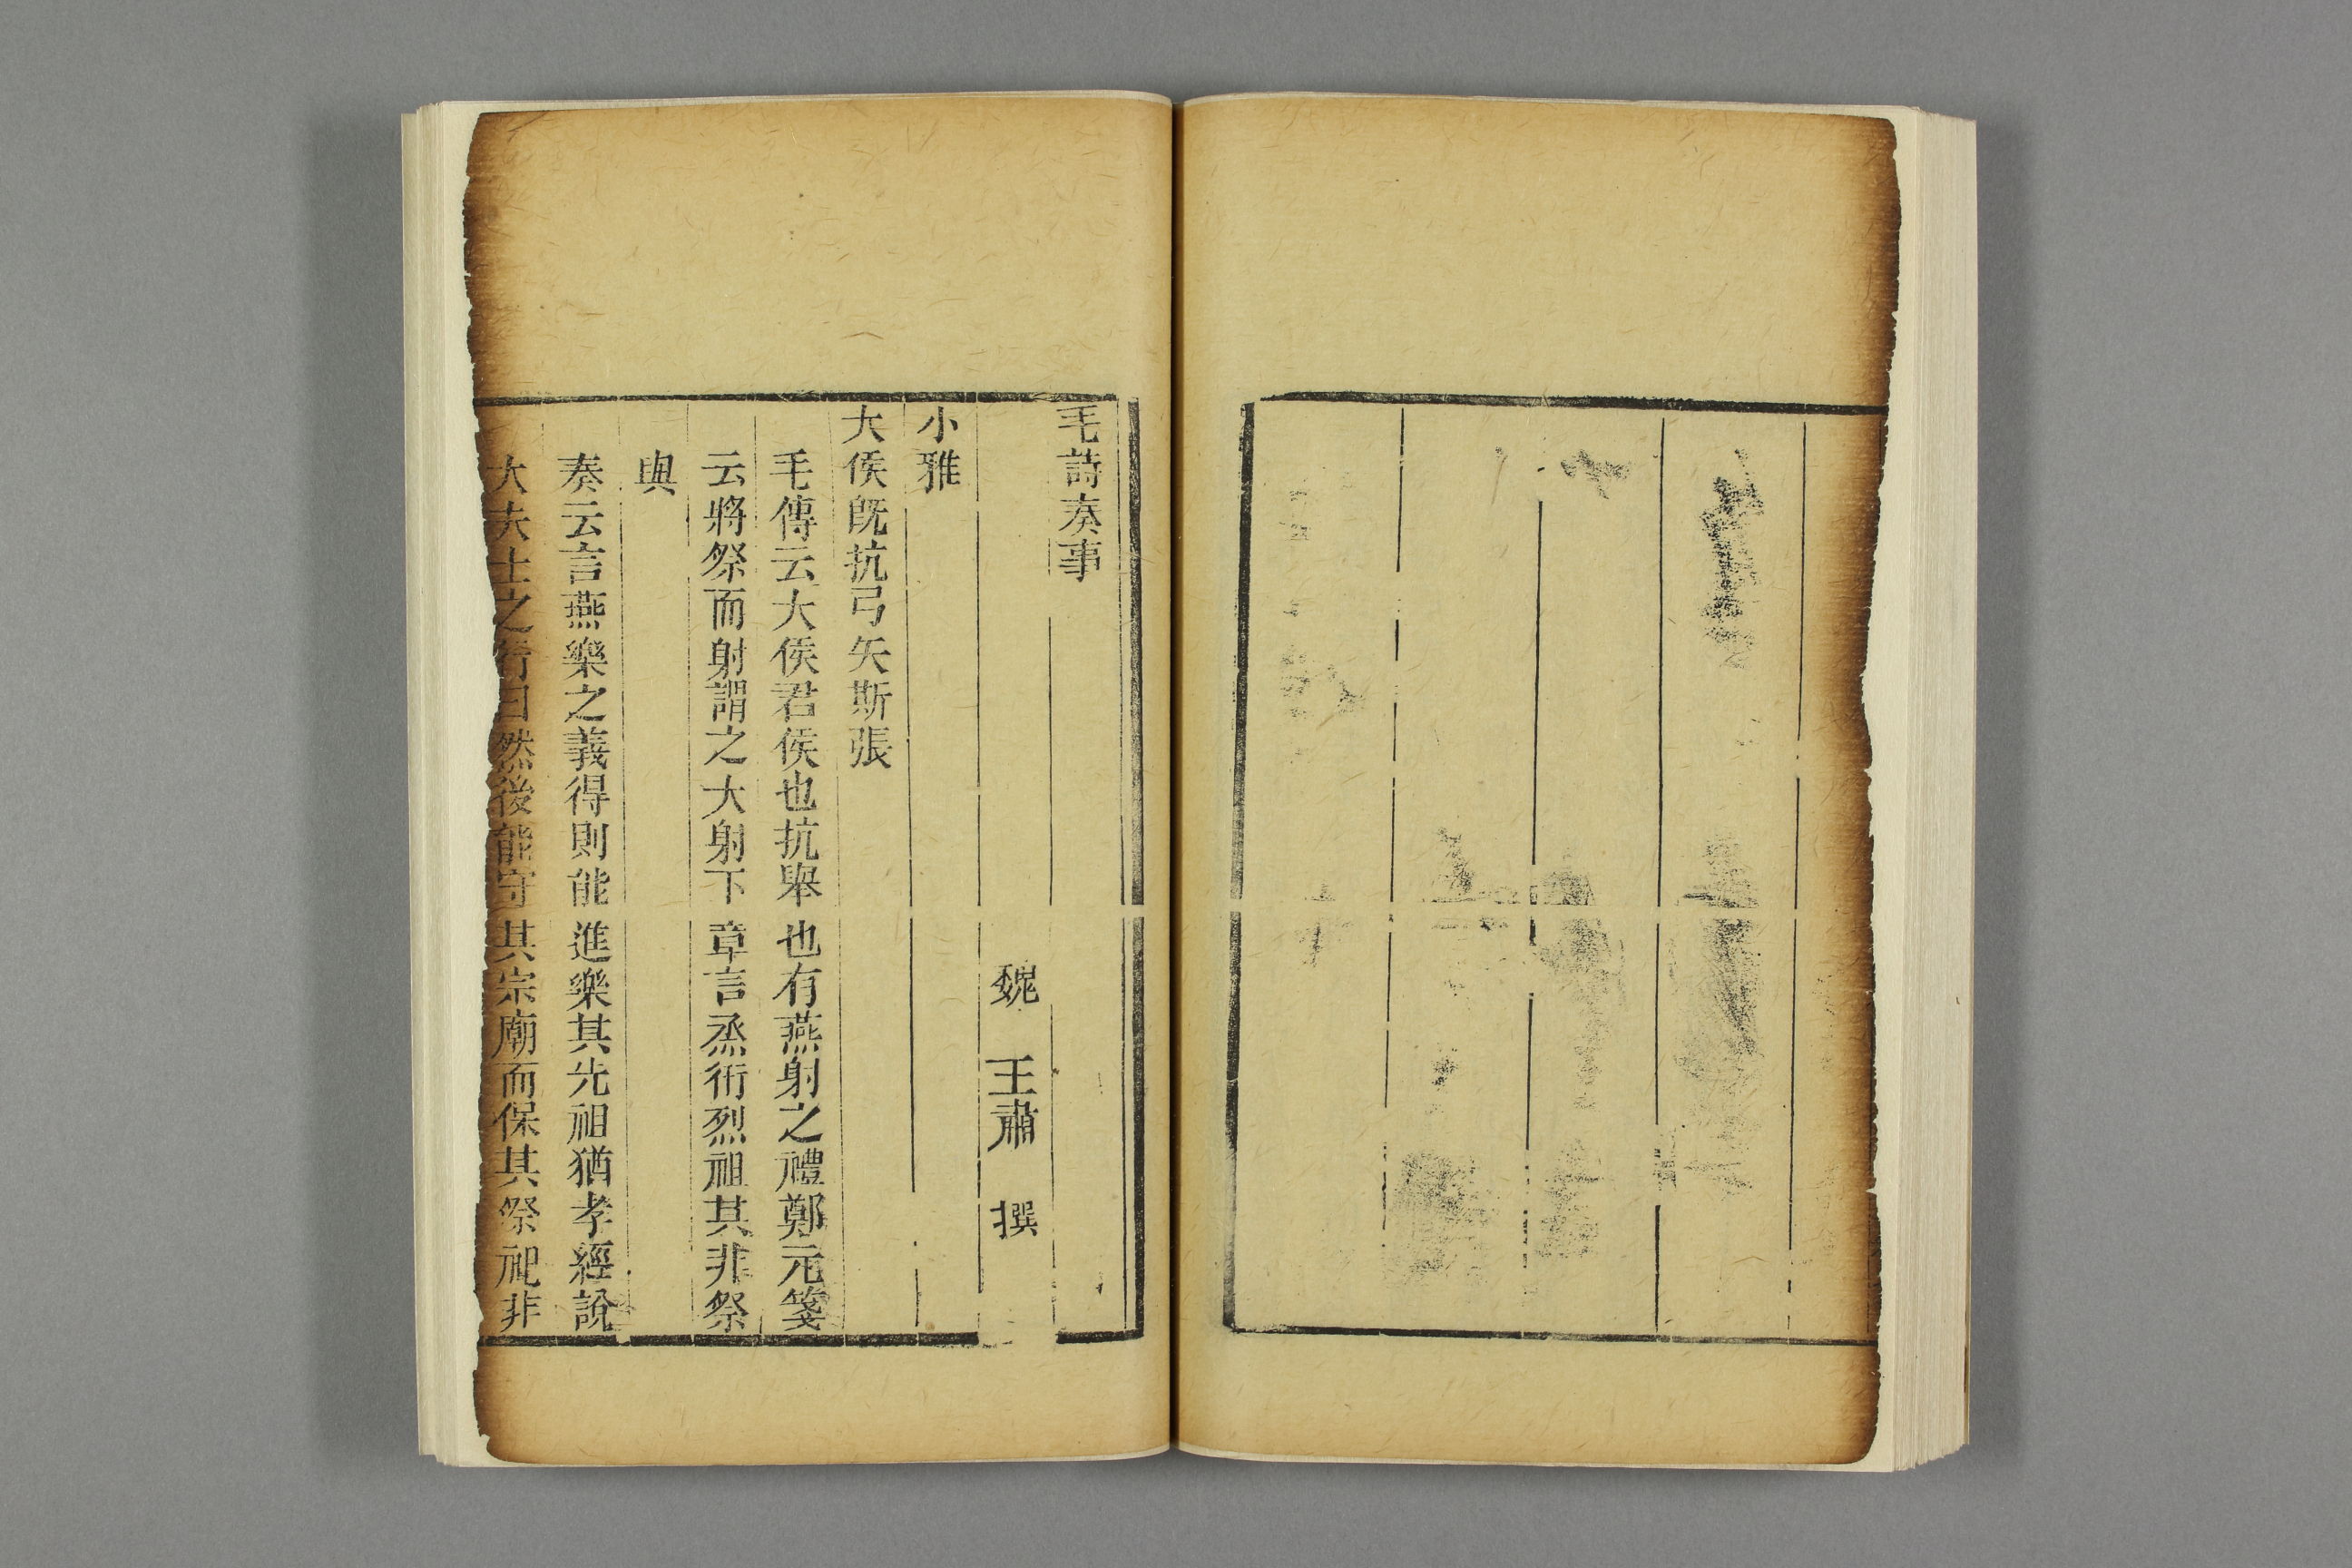 毛詩奏事
魏 王肅 撰
小雅
大侯旣抗弓矢斯張
毛傳云大侯君侯也抗舉也有燕射之禮鄭元箋
云將祭而射謂之大射下章言烝衎烈祖其非祭
與
奏云言燕樂之義得則能進樂其先祖猶孝經說
大夫士之行曰然後能守其宗廟而保其祭祀非